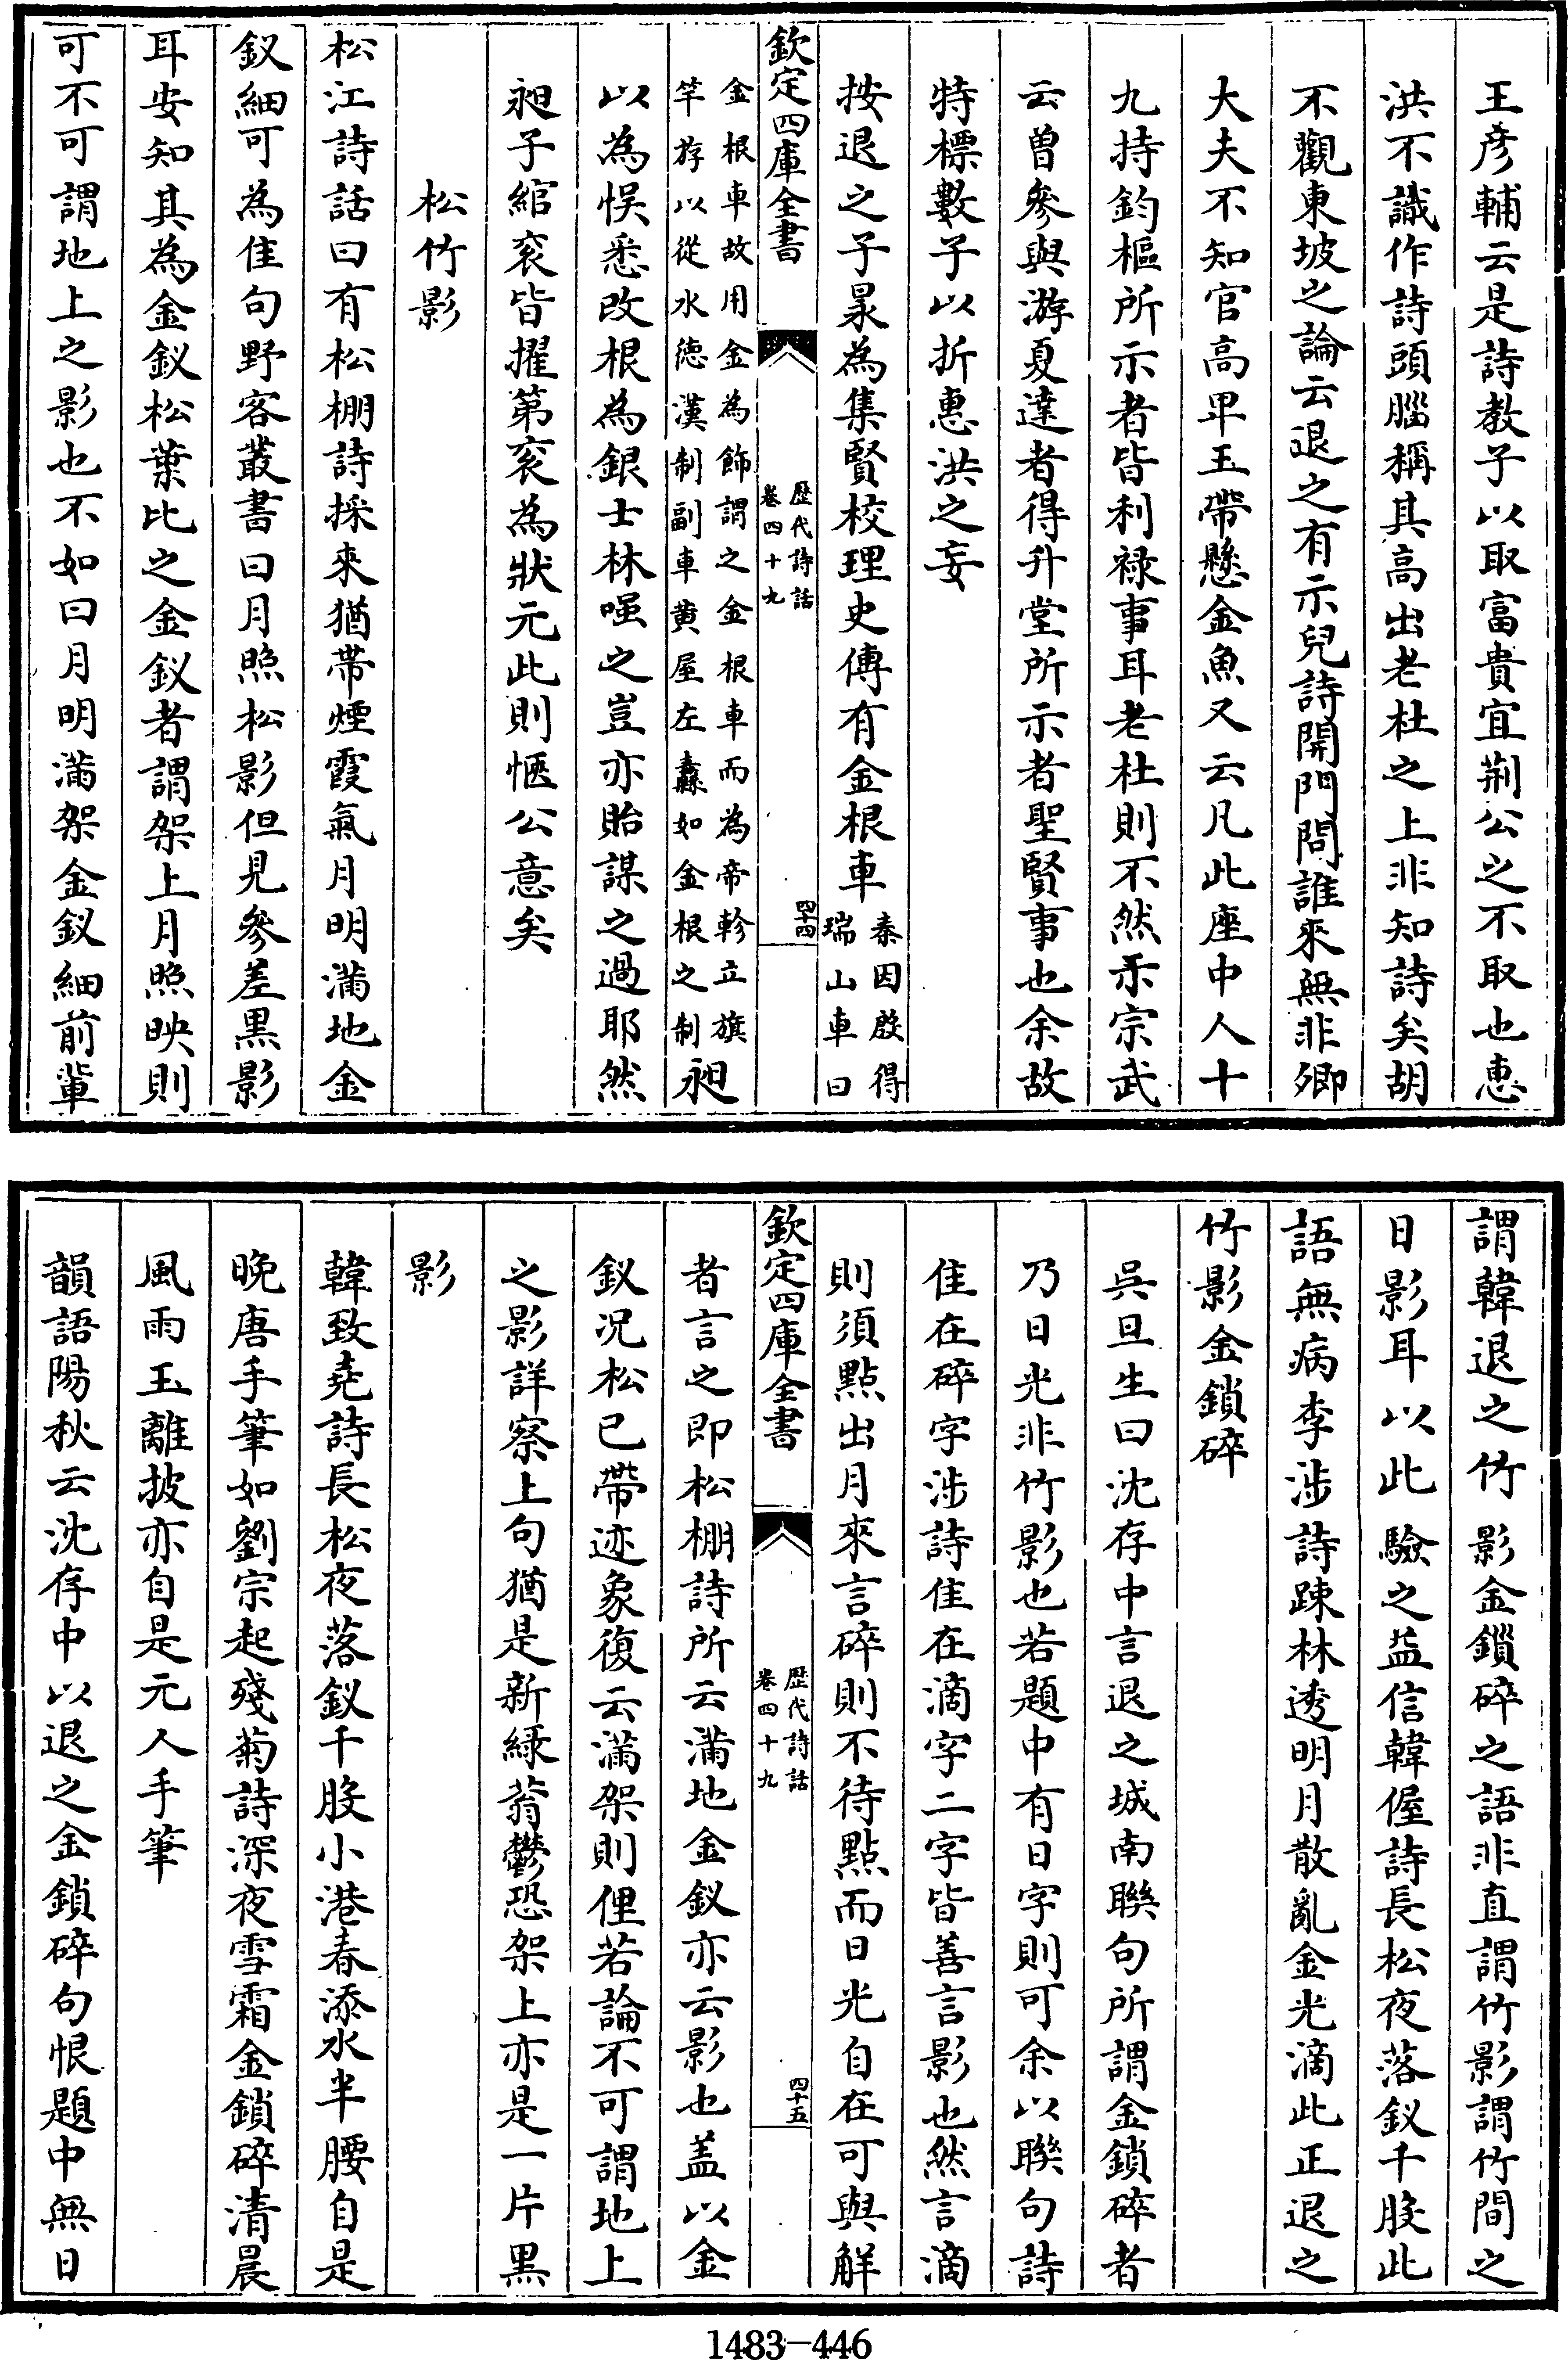 王彦輔云是詩教子以取富貴宜荆公之不取也惠
洪不識作詩頭腦稱其高出老杜之上非知詩矣胡
不觀東坡之論云退之有示兒詩開門問誰來無非卿
大夫不知官高卑玉帶懸金魚又云凡此座中人十
九持鈞樞所示者皆利禄事耳老杜則不然示宗武
云曽參與游夏達者得升堂所示者聖賢事也余故
特標數子以折惠洪之妄
按退之子㫤為集賢校理史傳有金根車秦因啟得瑞山車曰
欽定四庫全書
歴代詩話
卷四十九
四十四
金根車故用金為飾謂之金根車而為帝軫立旗
竿斿以從水徳漢制副車黄屋左纛如金根之制㫤
以為悞悉改根為銀士林嗤之豈亦貽謀之過耶然
㫤子綰衮皆擢第衮為狀元此則愜公意矣
松竹影
松江詩話曰有松棚詩採來猶帶煙霞氣月明滿地金
釵細可為佳句野客叢書曰月照松影但見參差黒影
耳安知其為金釵松葉比之金釵者謂架上月照映則
可不可謂地上之影也不如曰月明滿架金釵細前軰
謂韓退之竹影金鎖碎之語非直謂竹影謂竹間之
日影耳以此驗之益信韓偓詩長松夜落釵千股此
語無病李涉詩踈林透明月散亂金光滴此正退之
竹影金鎖碎
吳旦生曰沈存中言退之城南聯句所謂金鎖碎者
乃日光非竹影也若題中有日字則可余以聯句詩
佳在碎字涉詩佳在滴字二字皆善言影也然言滴
則須點出月來言碎則不待點而日光自在可與解
欽定四庫全書
歴代詩話
卷四十九
四十五
者言之即松棚詩所云滿地金釵亦云影也盖以金
釵况松已帶迹象復云滿架則俚若論不可謂地上
之影詳察上句猶是新緑蓊鬱恐架上亦是一片黒
影
韓致堯詩長松夜落釵千股小港春添水半腰自是
晚唐手筆如劉宗起殘菊詩深夜雪霜金鎖碎清晨
風雨玉離披亦自是元人手筆
韻語陽秋云沈存中以退之金鎖碎句恨題中無日
1483-446